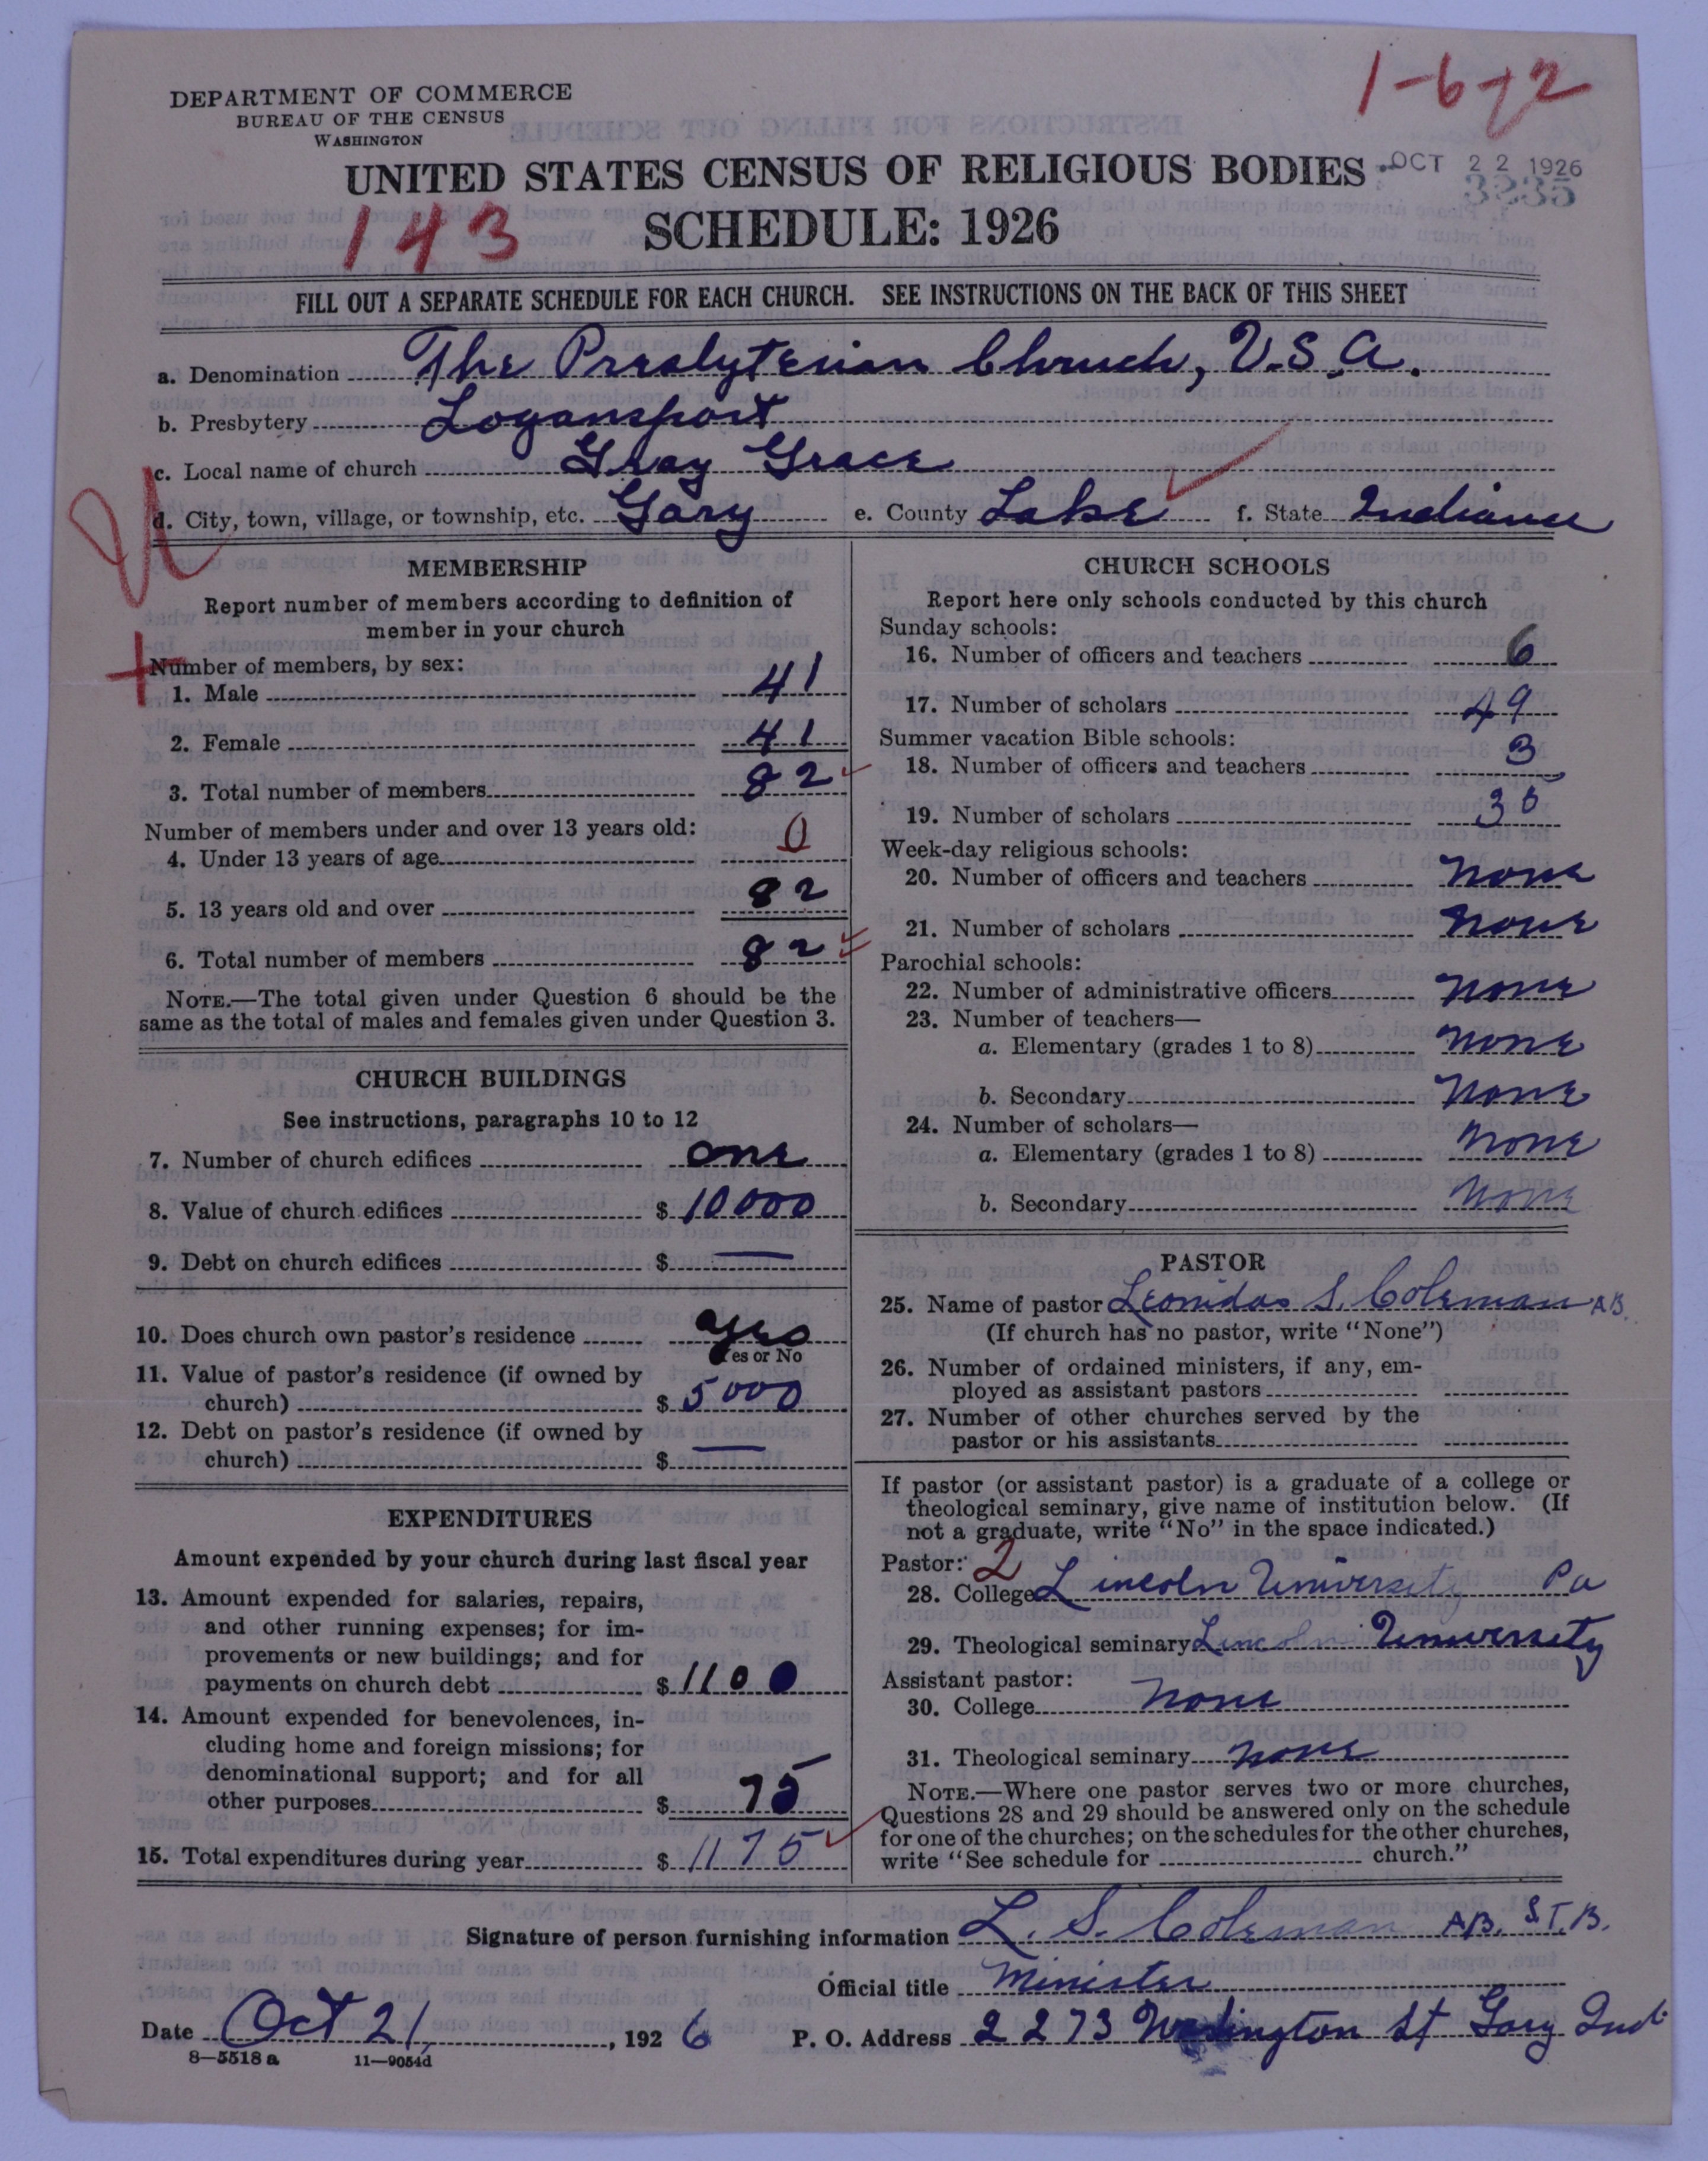 1-6-2
DEPARTMENT OF COMMERCE
BUREAU OF THE CENSUS
WASHINGTON
UNITED STATES CENSUS OF RELIGIOUS BODIES
OCT 22 1926
143
SCHEDULE: 1926
FILL OUT A SEPARATE SCHEDULE FOR EACH CHURCH. SEE INSTRUCTIONS ON THE BACK OF THIS SHEET
a. Denomination The Presbyterian Chruch, U.S.A.
b. Presbytery Logansport
c. Local name of church Gray Grace
d. City, town, village, or township, etc. Gary e. County Lake f. State Indiana
MEMBERSHIP
Report number of members according to definition of
member in your church
Number of members, by sex:
1. Male 41
2. Female 41
3. Total number of members 82
Number of members under and over 13 years old:
4. Under 13 years of age 0
5. 13 years old and over 82
6. Total number of members 82
NOTE.—The total given under Question 6 should be the
same as the total of males and females given under Question 3.
CHURCH BUILDINGS
See instructions, paragraphs 10 to 12
7. Number of church edifices one
8. Value of church edifices $ 10000
9. Debt on church edifices $ —
10. Does church own pastor's residence yes
Yes or No
11. Value of pastor's residence (if owned by
church) $ 5000
12. Debt on pastor's residence (if owned by
church) $ —
EXPENDITURES
Amount expended by your church during last fiscal year
13. Amount expended for salaries, repairs,
and other running expenses; for im-
provements or new buildings; and for
payments on church debt $ 1100
14. Amount expended for benevolences, in-
cluding home and foreign missions; for
denominational support; and for all
other purposes $ 75
15. Total expenditures during year $ 1175
CHURCH SCHOOLS
Report here only schools conducted by this church
Sunday schools:
16. Number of officers and teachers 6
17. Number of scholars 49
Summer vacation Bible schools:
18. Number of officers and teachers 3
19. Number of scholars 35
Week-day religious schools:
20. Number of officers and teachers none
21. Number of scholars none
Parochial schools:
22. Number of administrative officers none
23. Number of teachers—
a. Elementary (grades 1 to 8) none
b. Secondary none
24. Number of scholars—
a. Elementary (grades 1 to 8) none
b. Secondary none
PASTOR
25. Name of pastor Leonidas S. Coleman A.B.
(If church has no pastor, write "None")
26. Number of ordained ministers, if any, em-
ployed as assistant pastors
27. Number of other churches served by the
pastor or his assistants
If pastor (or assistant pastor) is a graduate of a college or
theological seminary, give name of institution below. (If
not a graduate, write "No" in the space indicated.)
Pastor: 2
28. College Lincoln University Pa
29. Theological seminary Lincoln University
Assistant pastor:
30. College none
31. Theological seminary none
NOTE.—Where one pastor serves two or more churches,
Questions 28 and 29 should be answered only on the schedule
for one of the churches; on the schedules for the other churches,
write "See schedule for church."
Signature of person furnishing information L. S. Coleman A.B. S.T.B.
Official title Minister
Date Oct 21, 1926 P. O. Address 2273 St Gary Ind
8-5518 a 11-9054d